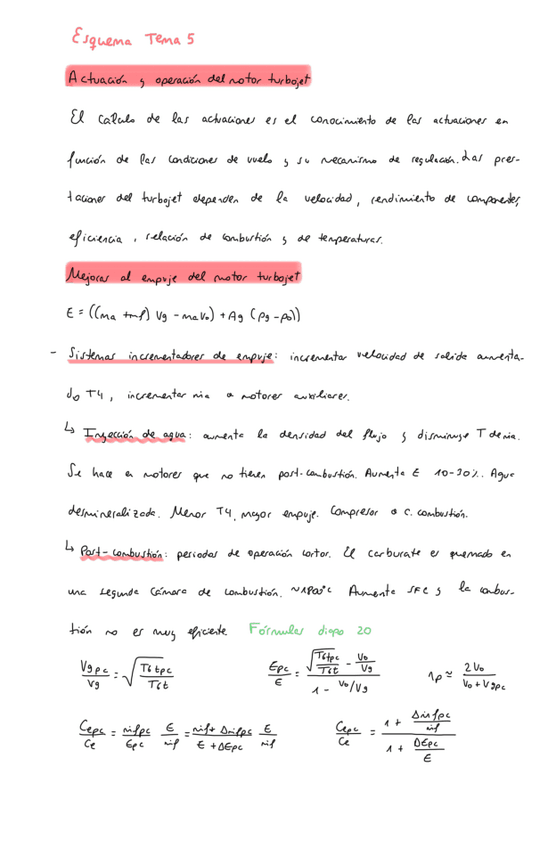 Esquema Tema 5
Actuación y operación del motor turbojet
El cálculo de las actuaciones es el conocimiento de las actuaciones en
función de las condiciones de vuelo y su mecanismo de regulación. Las pres-
taciones del turbojet dependen de la velocidad, rendimiento de componentes,
eficiencia, relación de combustión y de temperaturas.
Mejoras al empuje del motor turbojet
E = ((ma + mf) Vg - ma V0) + Ag (pg - p0))
- Sistemas incrementadores de empuje: incrementar velocidad de salida aumenta-
do T4, incrementar ma o motores auxiliares.
↳ Inyección de agua: aumenta la densidad del flujo y disminuye T de ma.
Se hace en motores que no tienen post-combustión. Aumenta E 10-30%. Agua
desmineralizada. Menor T4, mayor empuje. Compresor o c. combustión.
↳ Post-combustión: periodos de operación cortos. El carburante es quemado en
una segunda cámara de combustión. Aumenta SFC y la combus-
tión no es muy eficiente. Fórmulas diapo 20
Vgpc/Vg = √(T6tpc/T6t) Epc/E = (√(T6tpc/T6t) - V0/Vg)/(1 - V0/Vg) ηp ≈ 2V0/(V0 + Vgpc)
Cepc/Ce = ṁfpc/Epc E/ṁf = (ṁf + Δṁfpc)/(E + ΔEpc) E/ṁf Cepc/Ce = (1 + Δṁfpc/ṁf)/(1 + ΔEpc/E)